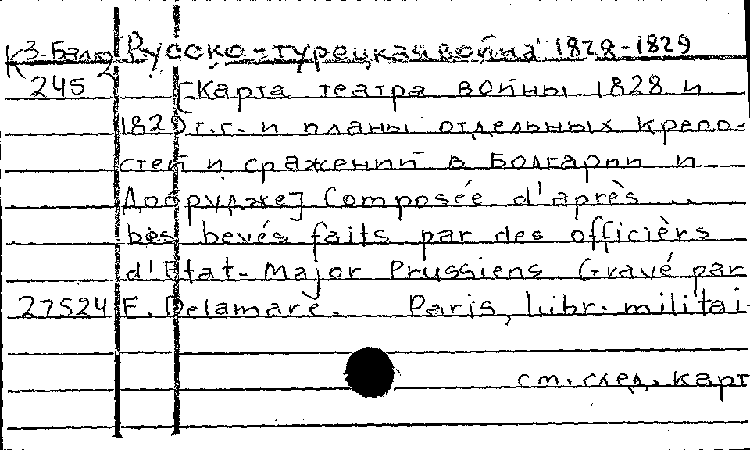 К3-Балк Русско-турецкая война 1828-1829
245 [Карта театра войны 1828 и
1829 г.г. и планы отдельных крепо-
стей и сражений в Болгарии и
Добрудже] Composée d'après
les levés faits par des officièrs
d'Etat-Major Prussiens Gravé par
27524 F. Delamare. Paris, libr. militai-
см. след. карт